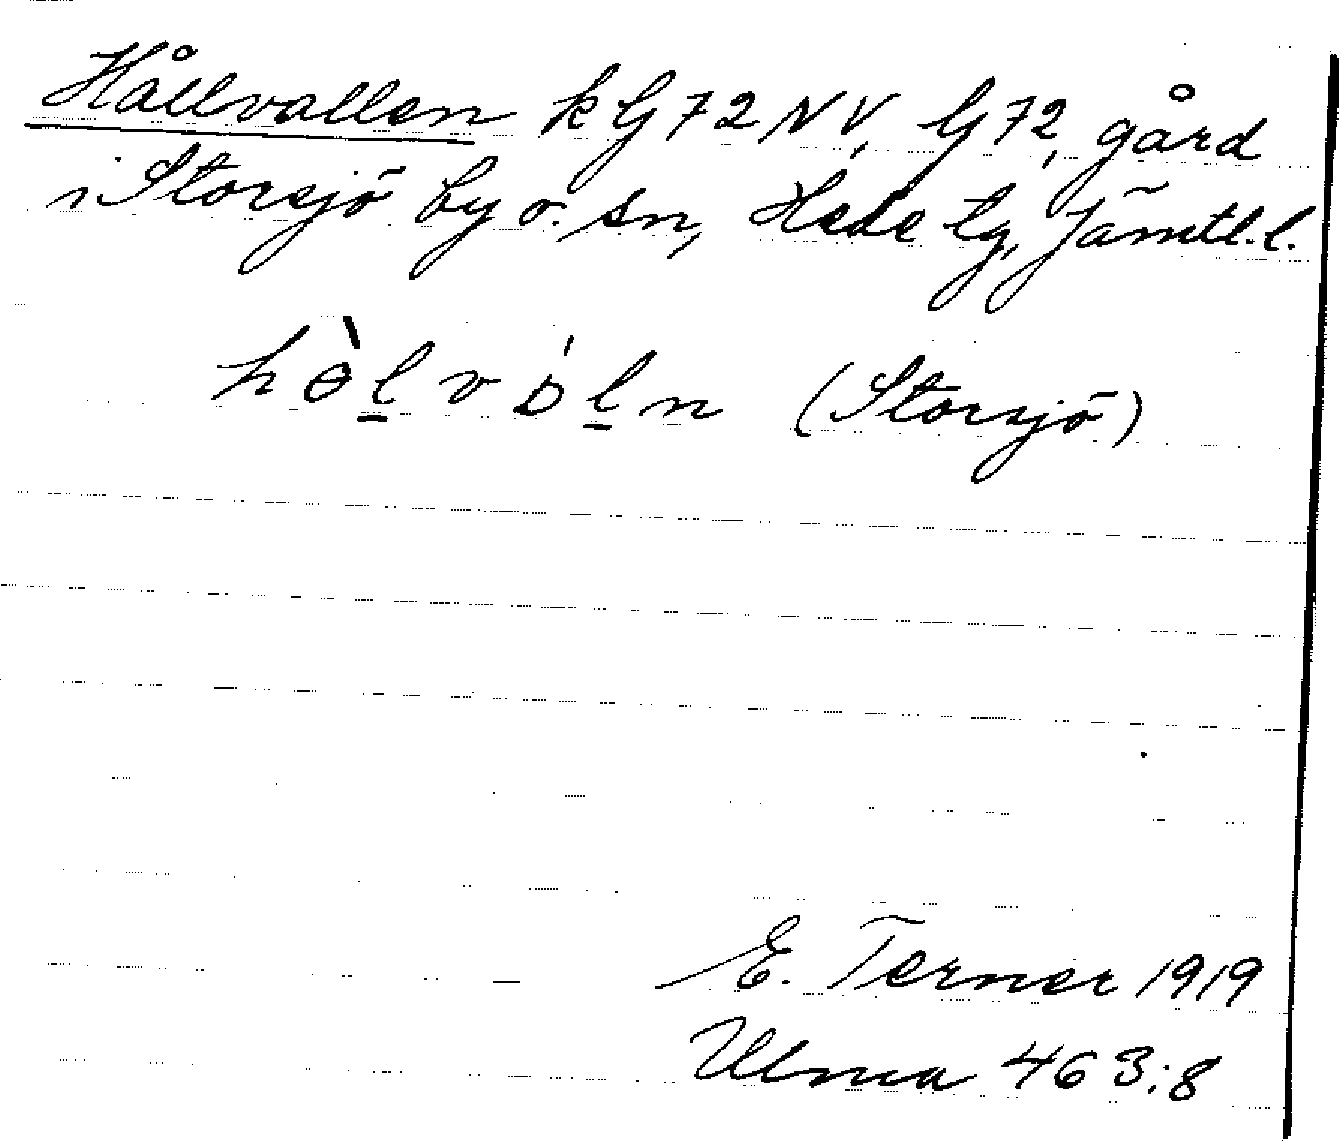 Hållvallen k G 72 NV, G 72, gård
i Storsjö by o. sn, Hede tg, Jämtl. l.
hɵ̀l̠vɒ́l̠n (Storsjö)
E. Terner 1919
Ulma 463:8